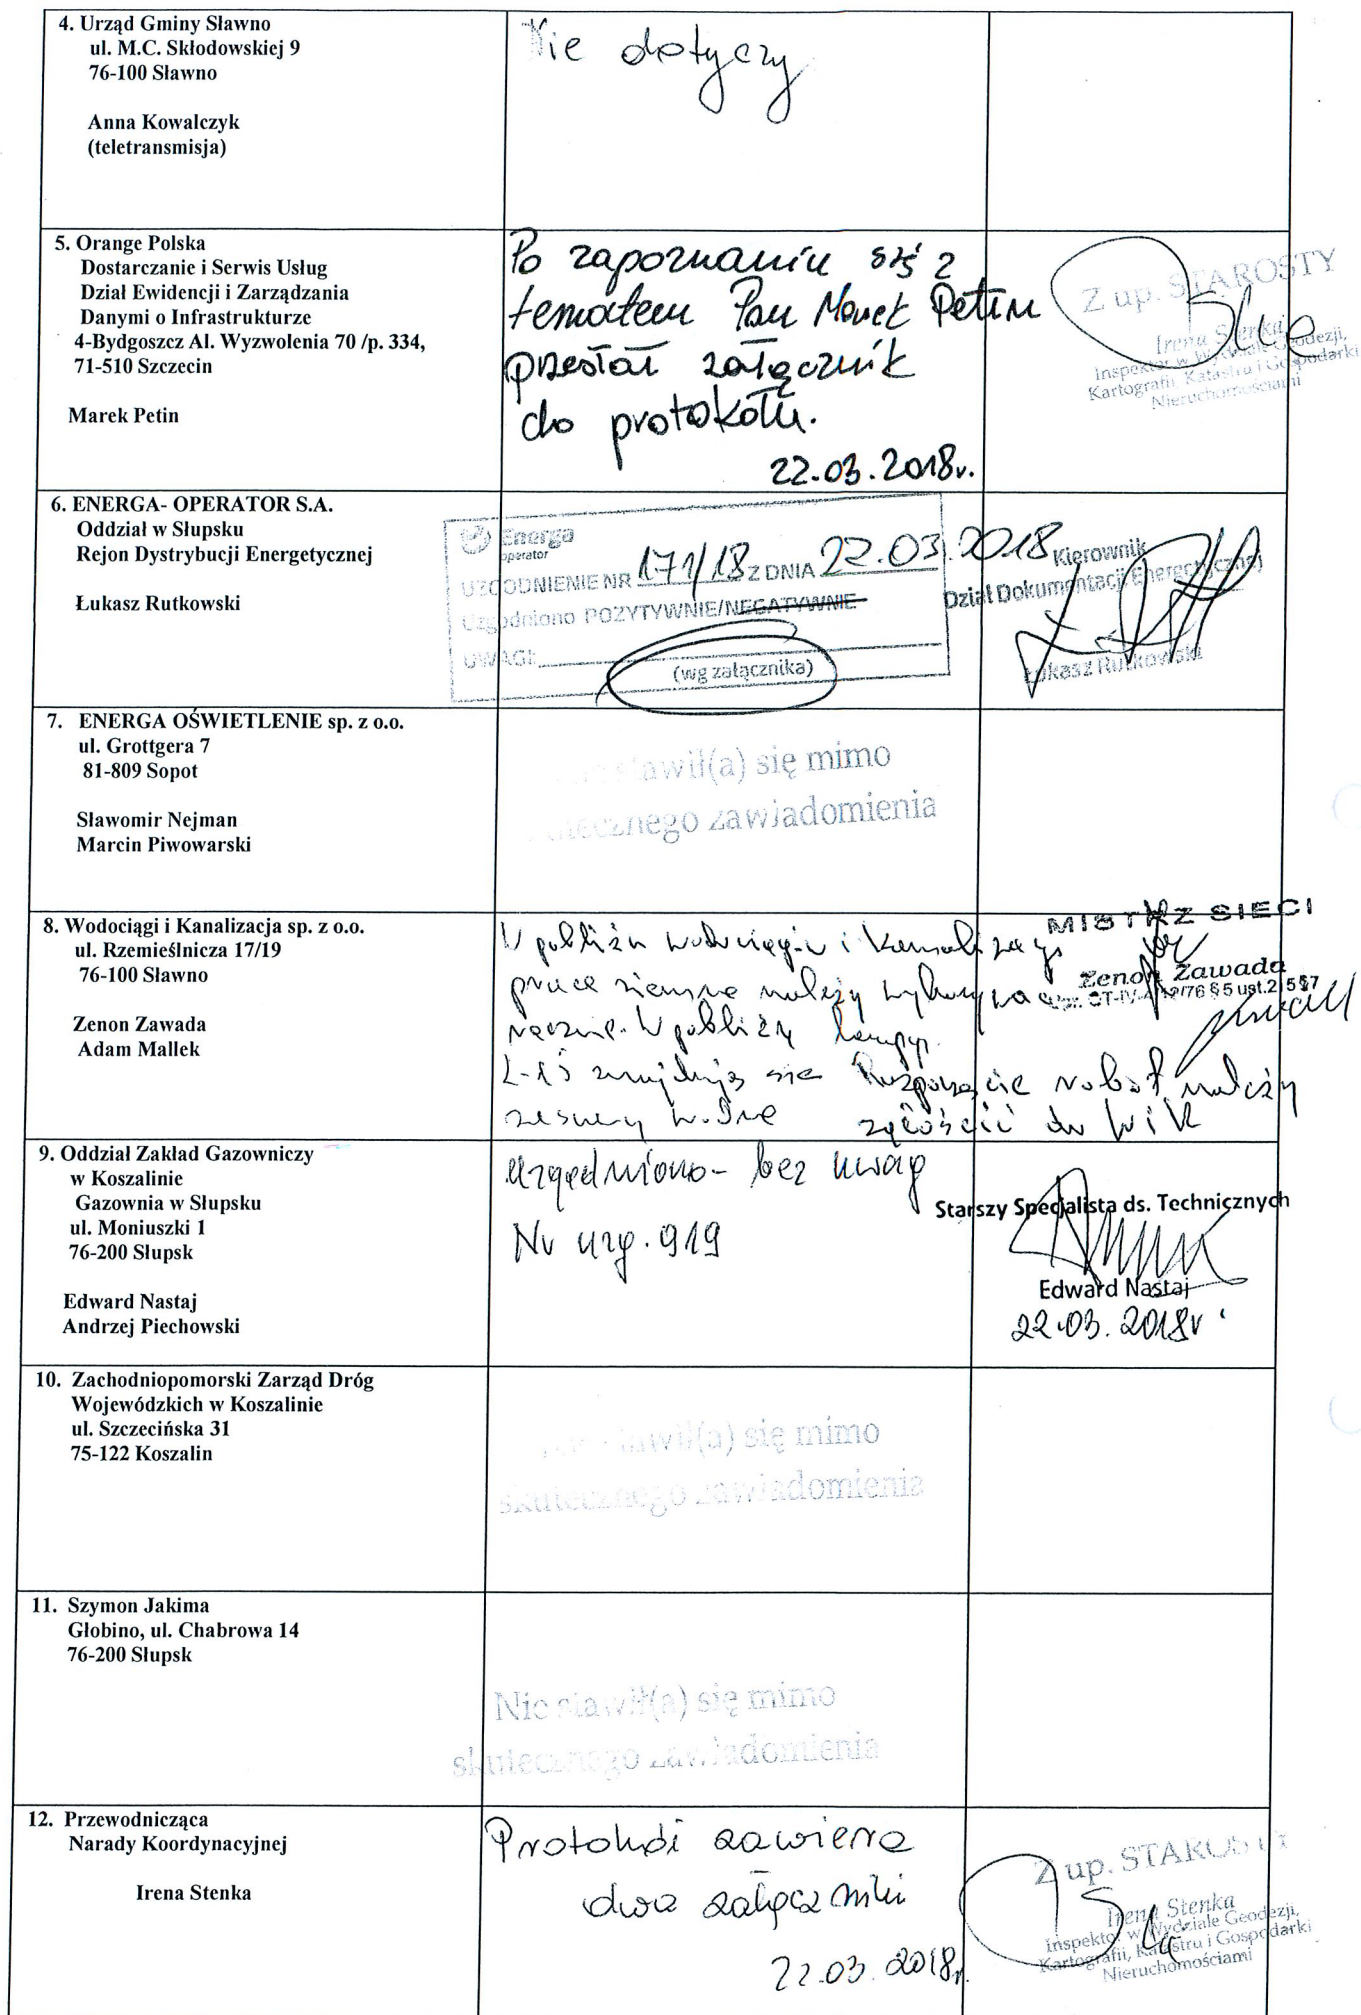 4. Urząd Gminy Sławno
ul. M.C. Skłodowskiej 9
76-100 Sławno
Anna Kowalczyk
(teletransmisja)
Nie dotyczy
5. Orange Polska
Dostarczanie i Serwis Usług
Dział Ewidencji i Zarządzania
Danymi o Infrastrukturze
4-Bydgoszcz Al. Wyzwolenia 70 /p. 334,
71-510 Szczecin
Marek Petin
Po zapoznaniu się z
tematem Pan Marek Petin
przesłał załącznik
do protokołu.
22.03.2018r.
Z up. STAROSTY
Irena Stenka
Inspektor w Wydziale Geodezji,
Kartografii, Katastru i Gospodarki
Nieruchomościami
6. ENERGA- OPERATOR S.A.
Oddział w Słupsku
Rejon Dystrybucji Energetycznej
Łukasz Rutkowski
Energa
operator
UZGODNIENIE NR 171/18 Z DNIA 22.03.2018
Uzgodniono POZYTYWNIE/NEGATYWNIE
UWAGI:
(wg załącznika)
Kierownik
Dział Dokumentacji Energetycznej
Łukasz Rutkowski
7. ENERGA OŚWIETLENIE sp. z o.o.
ul. Grottgera 7
81-809 Sopot
Sławomir Nejman
Marcin Piwowarski
stawił(a) się mimo
skutecznego zawiadomienia
8. Wodociągi i Kanalizacja sp. z o.o.
ul. Rzemieślnicza 17/19
76-100 Sławno
Zenon Zawada
Adam Mallek
W pobliżu wodociągu i kanalizacji
prace ziemne należy wykonywać
ręcznie. W pobliżu
znajdują się
Rozpoczęcie robót należy
zgłosić do WiK
MISTRZ SIECI
Zenon Zawada
9. Oddział Zakład Gazowniczy
w Koszalinie
Gazownia w Słupsku
ul. Moniuszki 1
76-200 Słupsk
Edward Nastaj
Andrzej Piechowski
uzgodniono- bez uwag
Nr uzg. 919
Starszy Specjalista ds. Technicznych
Edward Nastaj
22.03.2018r
10. Zachodniopomorski Zarząd Dróg
Wojewódzkich w Koszalinie
ul. Szczecińska 31
75-122 Koszalin
stawił(a) się mimo
skutecznego zawiadomienia
11. Szymon Jakima
Głobino, ul. Chabrowa 14
76-200 Słupsk
Nie stawił(a) się mimo
skutecznego zawiadomienia
12. Przewodnicząca
Narady Koordynacyjnej
Irena Stenka
Protokół zawiera
dwa załączniki
22.03.2018r.
Z up. STAROSTY
Irena Stenka
Inspektor w Wydziale Geodezji,
Kartografii, Katastru i Gospodarki
Nieruchomościami